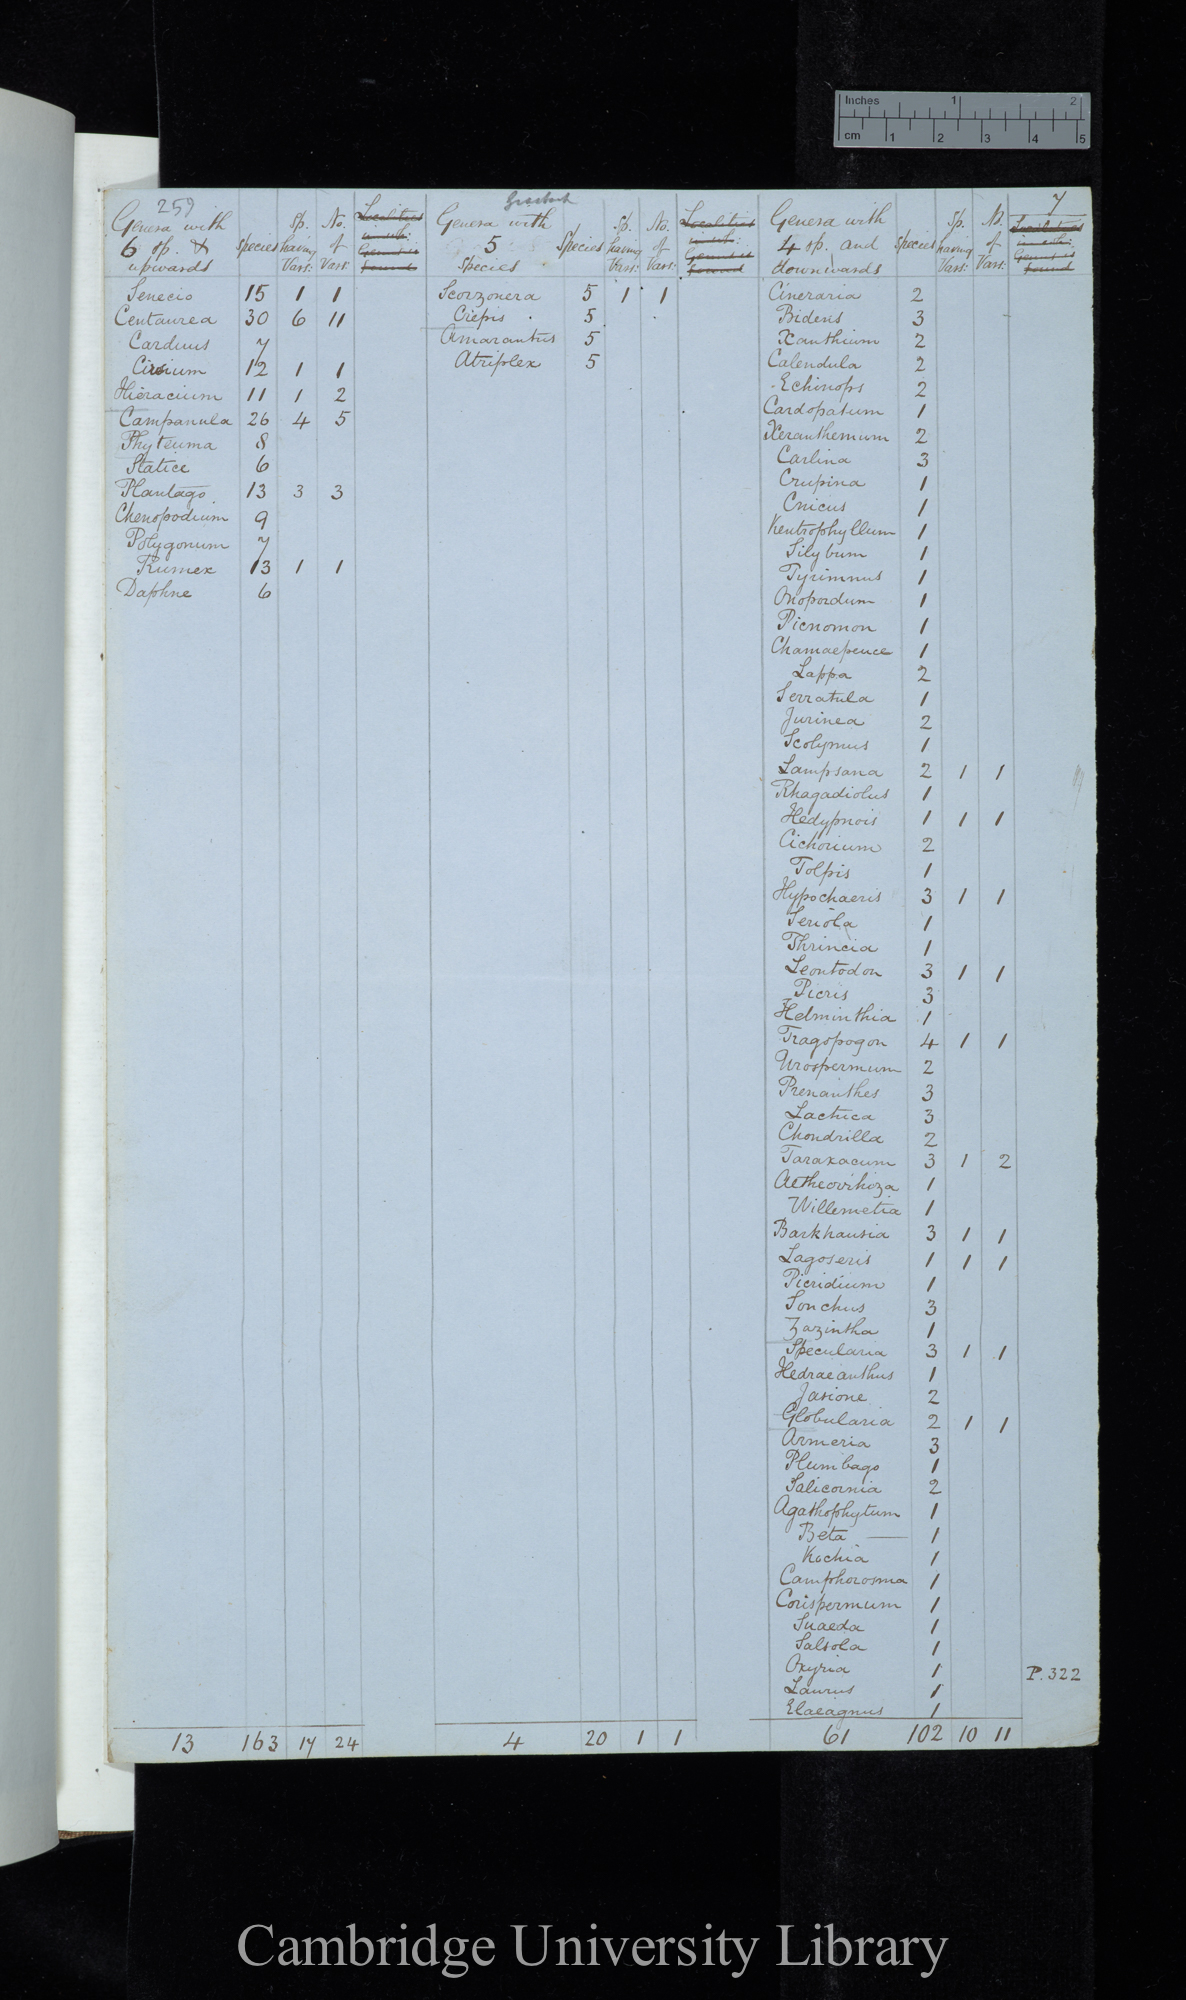 Inches 1 2
cm 1 2 3 4 5
259
7
Genera with 6 sp. & upwards Species Sp. having Vars: No. of Vars:
Senecio 15 1 1
Centaurea 30 6 11
Carduus 7
Cirsium 12 1 1
Hieracium 11 1 2
Campanula 26 4 5
Phyteuma 8
Statice 6
Plantago 13 3 3
Chenopodium 9
Polygonum 7
Rumex 13 1 1
Daphne 6
13 163 17 24
Genera with 5 Species Species Sp. having Vars: No. of Vars:
Scorzonera 5 1 1
Crepis 5
Amarantus 5
Atriplex 5
4 20 1 1
Genera with 4 sp. and downwards Species Sp. having Vars: No. of Vars:
Cineraria 2
Bidens 3
Xanthium 2
Calendula 2
Echinops 2
Cardopatum 1
Xeranthemum 2
Carlina 3
Crupina 1
Cnicus 1
Kentrophyllum 1
Silybum 1
Tyrimnus 1
Onopordum 1
Picnomon 1
Chamaepeuce 1
Lappa 2
Serratula 1
Jurinea 2
Scolymus 1
Lampsana 2 1 1
Rhagadiolus 1
Hedypnois 1 1 1
Cichorium 2
Tolpis 1
Hypochaeris 3 1 1
Seriola 1
Thrincia 1
Leontodon 3 1 1
Picris 3
Helminthia 1
Tragopogon 4 1 1
Urospermum 2
Prenanthes 3
Lactuca 3
Chondrilla 2
Taraxacum 3 1 2
Aetheorrhiza 1
Willemetia 1
Barkhausia 3 1 1
Lagoseris 1 1 1
Picridium 1
Sonchus 3
Zazintha 1
Specularia 3 1 1
Hedraeanthus 1
Jasione 2
Globularia 2 1 1
Armeria 3
Plumbago 1
Salicornia 2
Agathophytum 1
Beta — 1
Kochia 1
Camphorosma 1
Corispermum 1
Suaeda 1
Salsola 1
Oxyria 1
Laurus 1
Elaeagnus 1
61 102 10 11
P. 322
Cambridge University Library